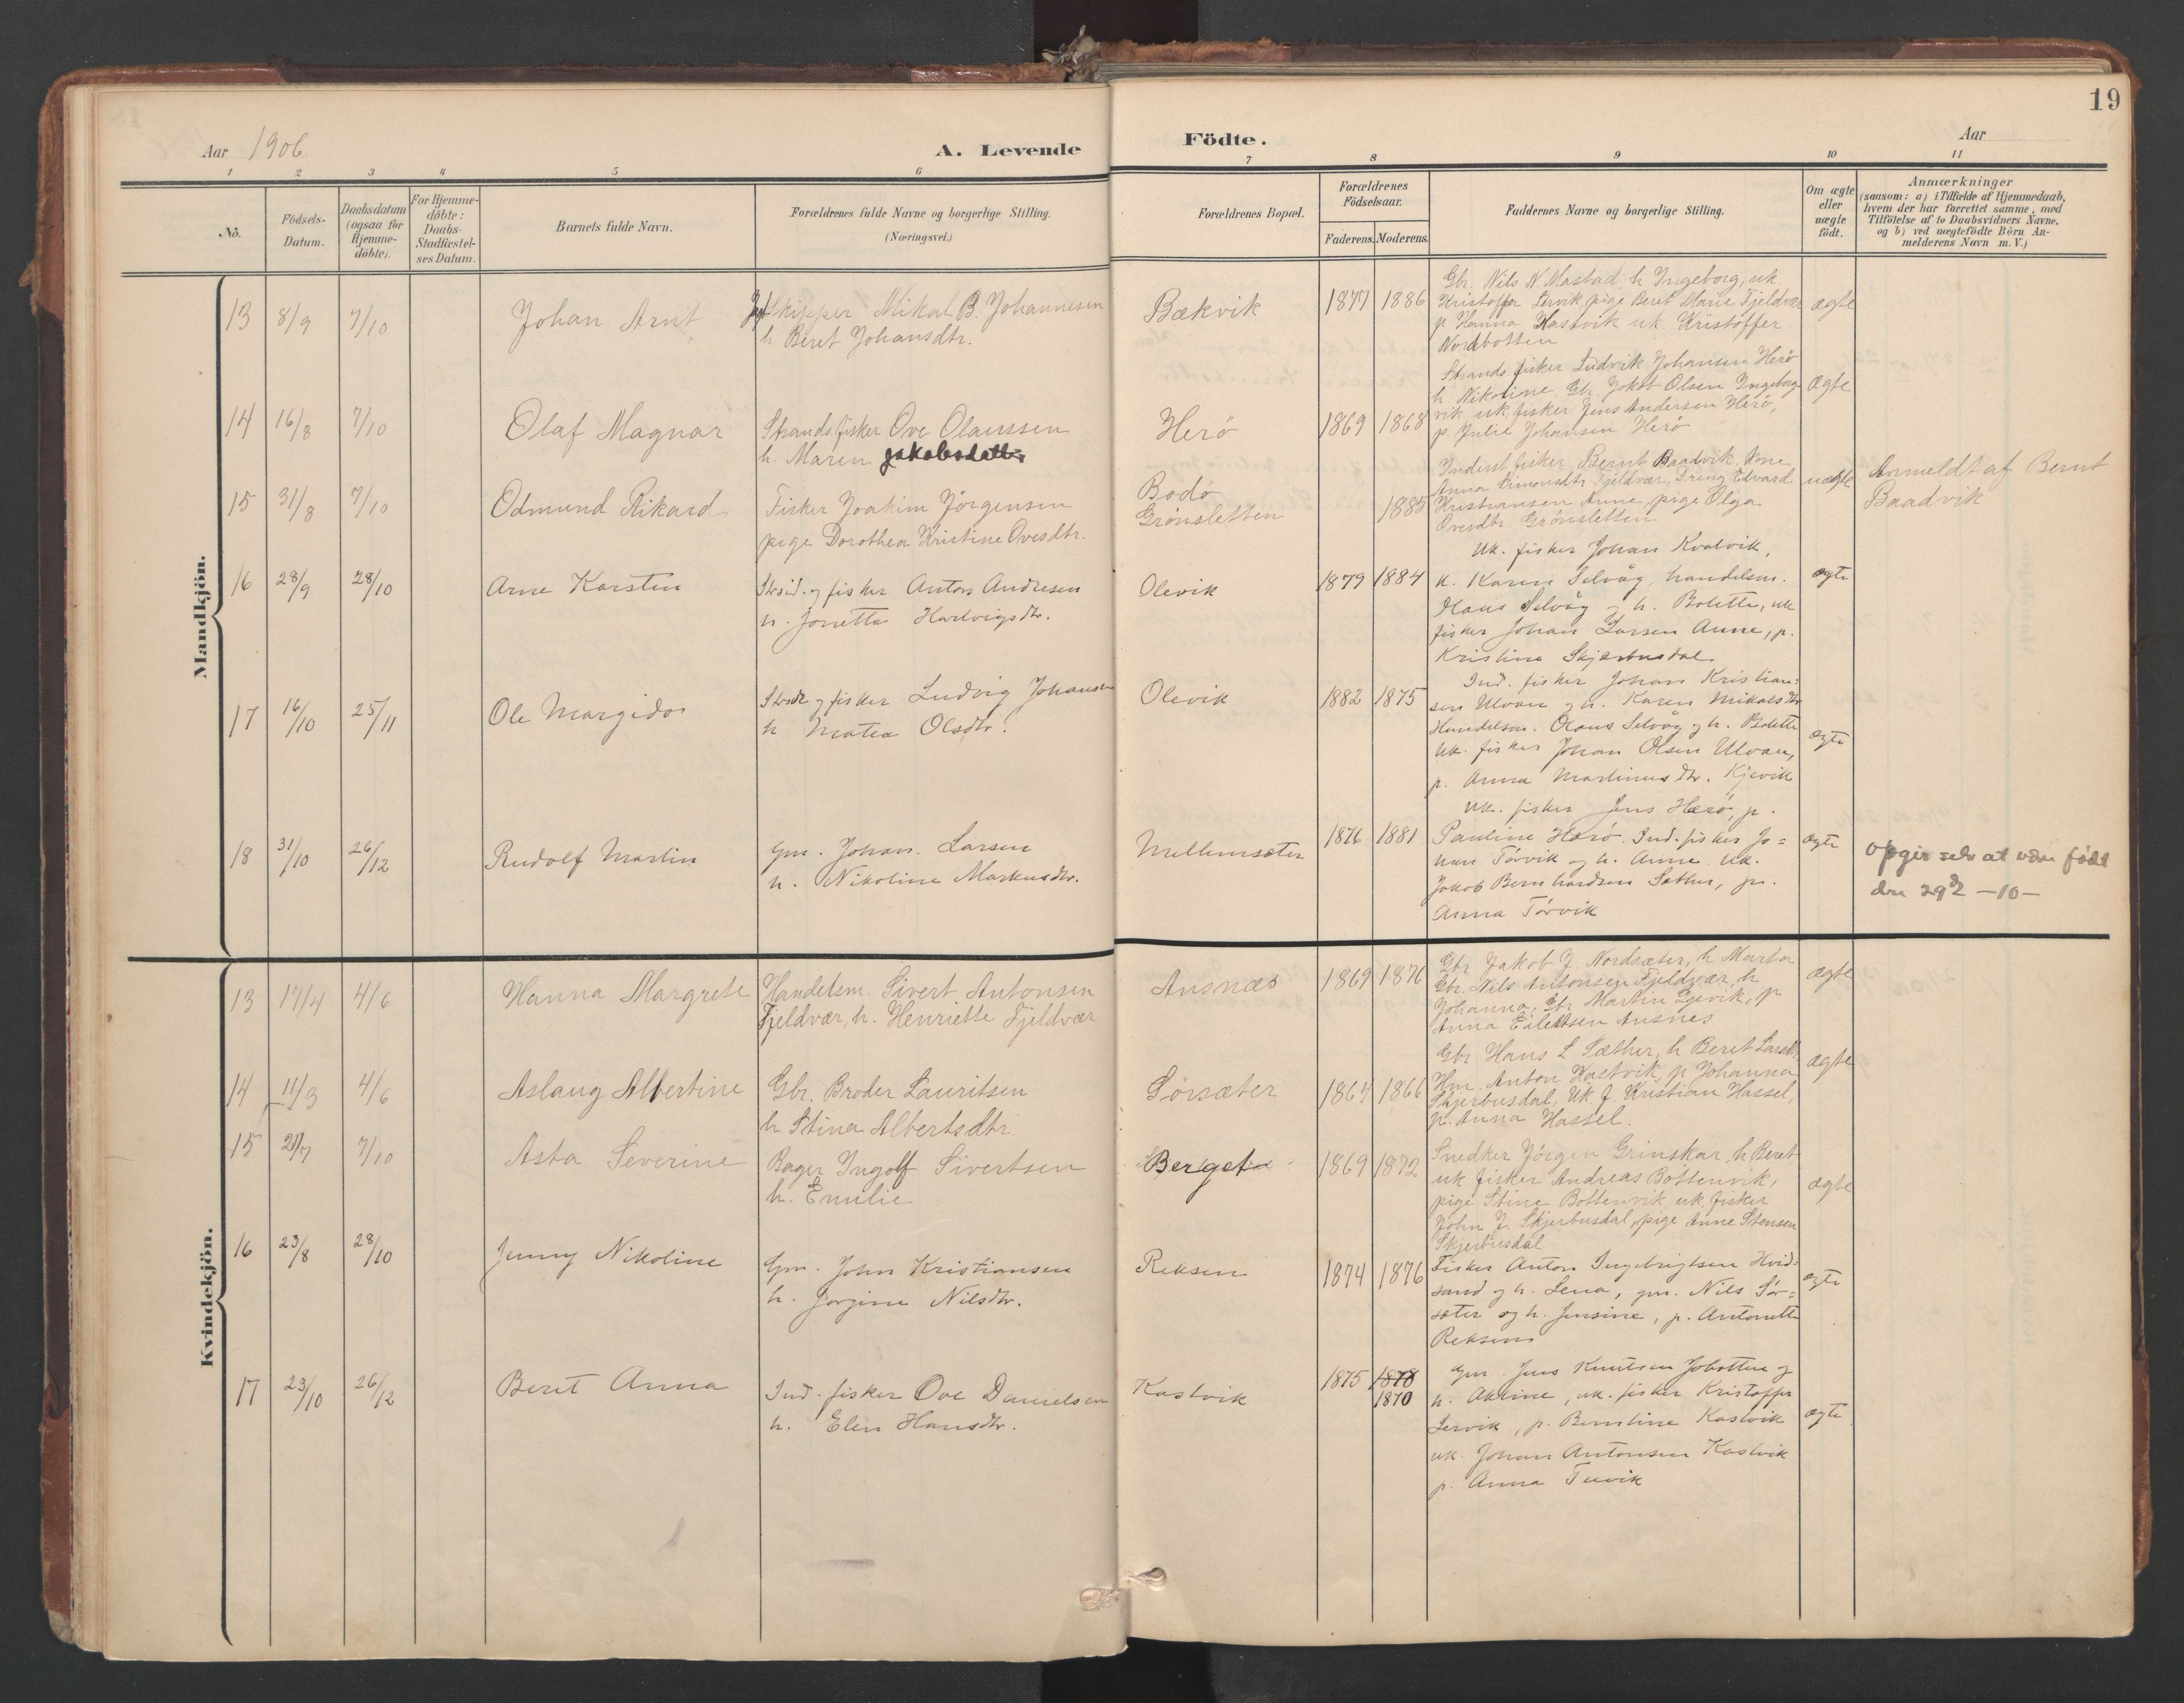 19
Aar 1906
A. Levende Födte.
Aar
1 2 3 4 5 6 7 8 9 10 11
No.
Födsels-Datum.
Daabsdatum (ogsaa for Hjemmedöbte).
For Hjemmedöbte: Daabs-Stadfæstelses Datum.
Barnets fulde Navn.
Forældrenes fulde Navne og borgerlige Stilling.
(Næringsvei.)
Forældrenes Bopæl.
Forældrenes Födselsaar.
Faderens. Moderens.
Faddernes Navne og borgerlige Stilling.
Om ægte eller uægte födt.
Anmærkninger
(saasom: a) i Tilfælde af Hjemmedaab,
hvem der har forrettet samme, med
Tilföielse af to Daabsvidners Navne,
og b) ved uægtefödte Börn An-
melderens Navn m. V.)
Mandkjön.
13 8/9 7/10 Johan Arnt
Skipper Mikal B. Johannesen
h Beret Johansdtr.
Bækvik 1877 1886
Gbr. Nils N. Mastad, h Ingeborg, uk.
Kristoffer Lervik, pige Beret Marie Fjeldvær
p Hanna Kastvik uk. Kristoffer
Nordbotten
ægte
14 16/8 7/10 Olaf Magnar
Strands.fisker Ove Olaussen
h. Maren Jakobsdatter
Herö 1869 1868
Strands.fisker Ludvik Johansen Herö
h. Nikoline, Gbr. Jakob Olsen Ingeborg-
vik, uk. fisker Jens Andersen Herö,
p. Julie Johansen Herö
Ægte
15 31/8 7/10 Odmund Rikard
Fisker Joakim Jörgensen
pige Dorothea Kristine Ovesdtr.
Bodö
Grönsletten
1885
Inderst fisker Bernt Baadvik, Kone
Anna Simonsdtr Fjeldvær, Dreng Edvard
Kristiansen Anne, pige Olga
Ovesdtr. Grönsletten
uægte
Anmeldt af Bernt
Baadvik
16 28/9 28/10 Arne Karsten
Strsid. og fisker Anton Andresen
h. Jonetta Hartvigsdtr.
Olevik 1879 1884
Uk. fisker Johan Kvalvik,
k. Karen Selvåg, handelsm.
Olaus Selvåg og h. Bolette, uk
fisker Johan Larsen Aune, p.
Kristine Skjærbusdal
ægte
17 16/10 25/11 Ole Margido
Strsid og fisker Ludvig Johansen
h Matea Olsdtr.
Olevik 1882 1875
Ind. fisker Johan Kristian=
sen Ulvan og h. Karen Mikalsdtr
Handelsm. Olaus Selvåg og h. Bolette
Uk. fisker Johan Olsen Ulvan,
p. Anna Martinusdtr. Kjevik
ægte
18 31/10 26/12 Rudolf Martin
Gm. Johan Larsen
h. Nikoline Markusdtr.
Mellemsæter 1876 1881
Uk. fisker Jens Hærö, p.
Pauline Hærö. Ind. fisker Jo=
han Törvik og h. Anne. Uk.
Jakob Bernhardsen Sæther, p.
Anna Törvik
ægte
opgir selv at være född
den 29de -10-
Kvindekjön.
13 17/4 4/6 Hanna Margrete
Handelsm. Sivert Antonsen
Fjeldvær, h. Henriette Fjeldvær
Ansnæs 1869 1876
Gbr Jakob J. Nordsæter, h Marta
Gbr. Nils Antonsen Fjeldvær, h
Johanna, Gbr. Martin Gjevik, p
Anna Eilertsen Ansnes
ægte
14 11/3 4/6 Aslaug Albertine
Gbr. Broder Lauritsen
h Stina Albertsdtr.
Sörsæter 1864 1866
Gbr Hans L Sæther, h Beret Larsdtr
Hm. Anton Kastvik, p Johanna
Skjerbusdal, Uk f. Kristian Hassel,
p. Anna Hassel.
ægte
15 21/7 7/10 Asta Severine
Bager Ingolf Sivertsen
h. Emilie
Berget 1869 1872
Snedker Jörgen Grinskar, h Beret
uk fisker Andreas Bottenvik,
pige Stine Bottenvik, uk. fisker
John J. Skjerbusdal, pige Anne Stensen
Skjerbusdal
ægte
16 23/8 28/10 Jenny Nikoline
Gm. John Kristiansen
h. Jorgine Nilsdtr.
Reksen 1874 1876
Fisker Anton Ingebrigtsen Hvid=
sand og h. Lena, gm. Nils Sör=
sæter og h. Jensine, p. Antonette
Reksen
ægte
17 23/10 26/12 Beret Anna
Ind. fisker Ove Danielsen
h. Elen Hansdtr.
Kastvik 1875 1878
1870
Gm. Jens Knutsen Jobotten og
h. Akrine, uk. fisker Kristoffer
Lervik, p. Berntine Kastvik
uk. Johan Antonsen Kastvik
p. Anna
ægte